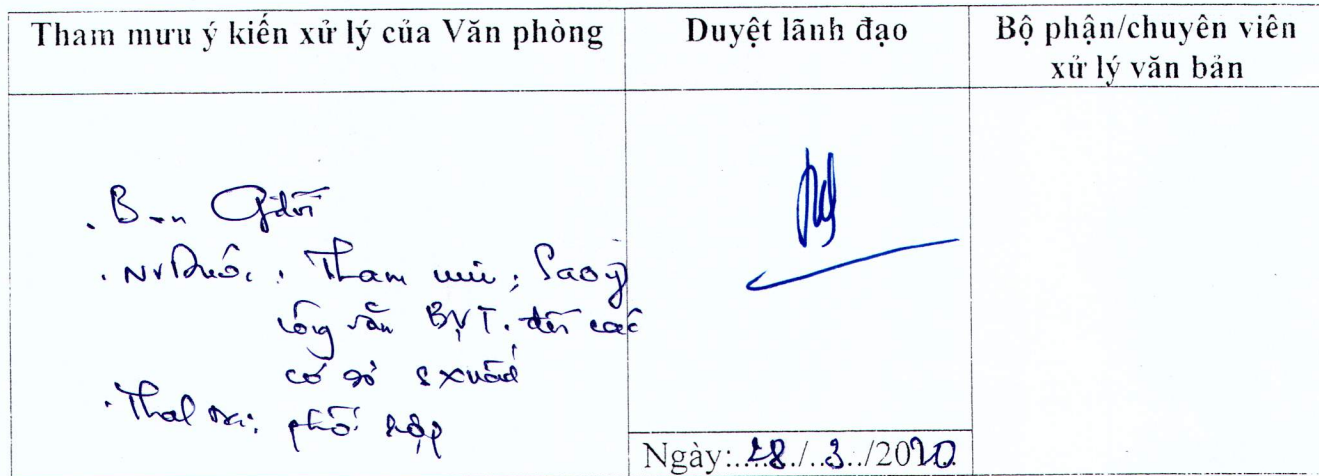 Tham mưu ý kiến xử lý của Văn phòng
Duyệt lãnh đạo
Bộ phận/chuyên viên
xử lý văn bản
. Ban Gđốc
. NVDược : Tham mưu ; Sao ý
công văn BYT. đến các
cơ sở sxuất
phối hợp
Ngày: 28/3/2020